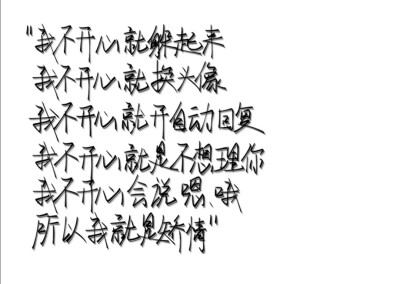 “我不开心就躲起来
我不开心就换头像
我不开心就开自动回复
我不开心就是不想理你
我不开心会说嗯、哦
所以我就是矫情”